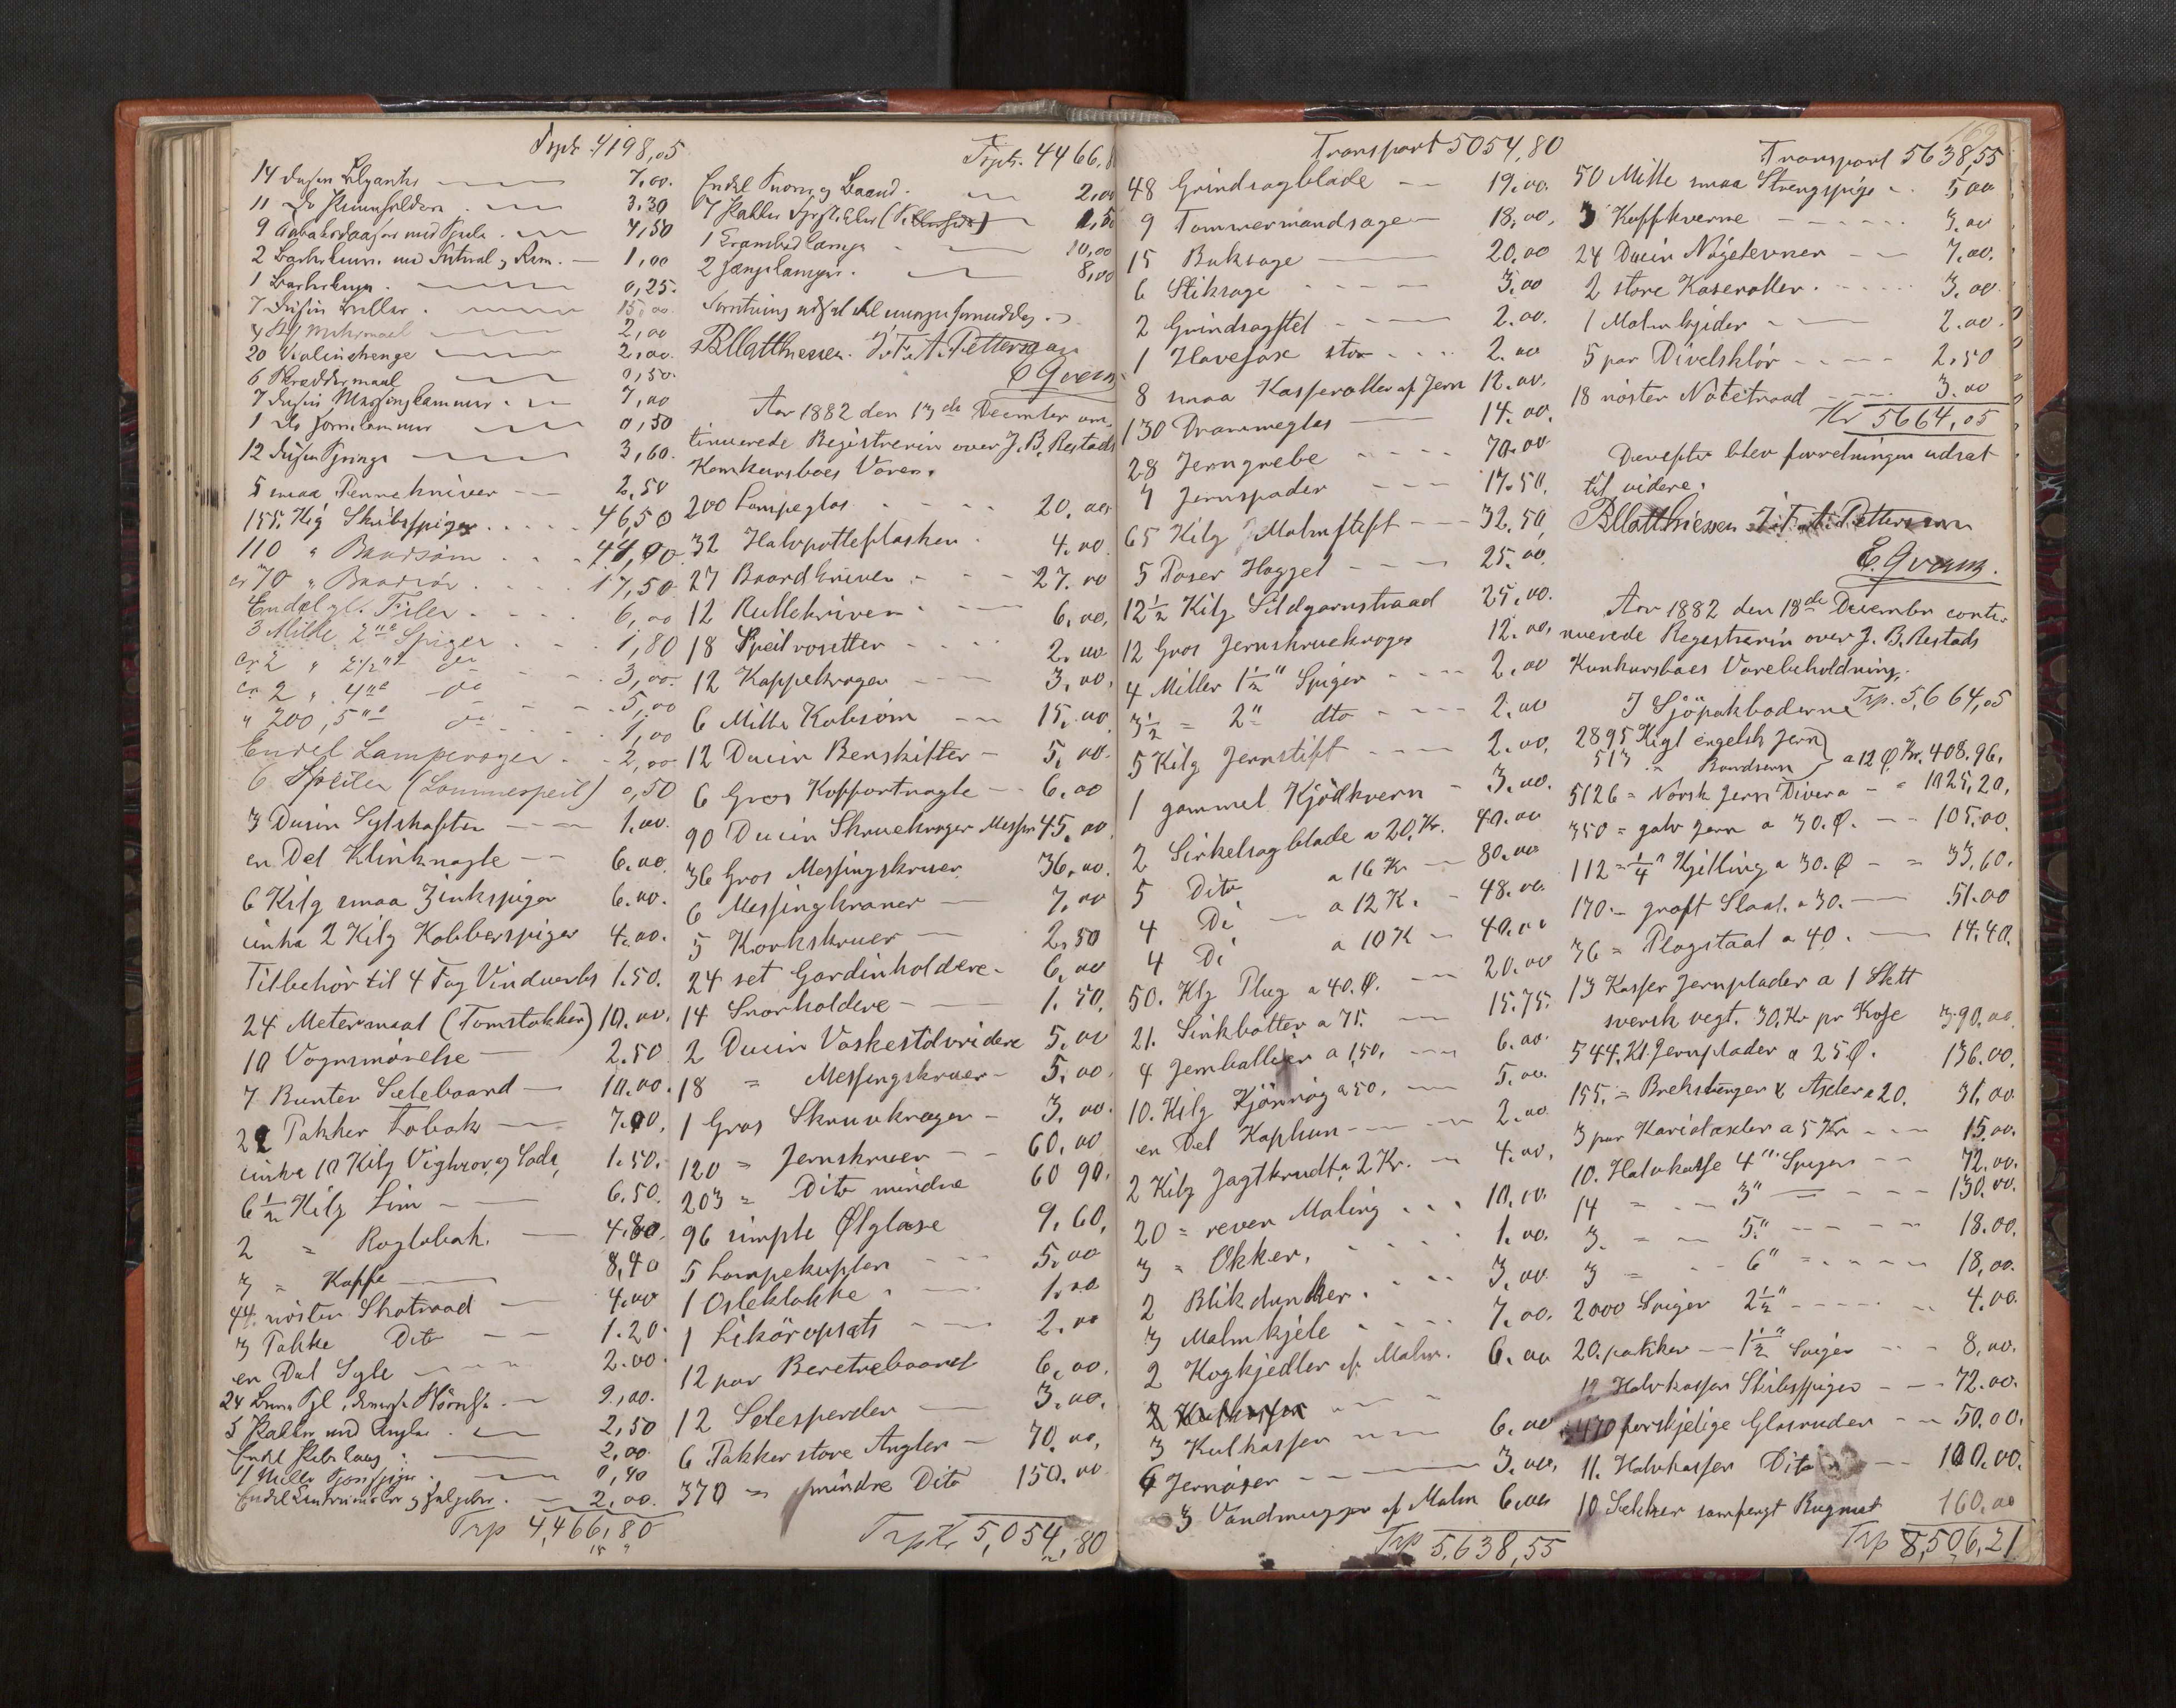 Trpt. 4198,05
14 Dusin 7,00.
11 Do 3.30
9 med 4,50
2 med Futeral & Rem. 1,00
1 0,25.
7 Dusin 15,00
4 2,00
20 Violinstrenge 2,00.
6 Skræddermaal 0,50.
7 Dusin Messinglammer 7,00
1 Do Jernlammer 0,50
12 Dusin 3,60.
5 smaa Pennekniver 2,50
155 Kig Skibsspiger 46,50
110 " Baadsøm 44,00
cr 70 " 17,50
Endel gl. Filer 6,00
3 Mille 2" Spiger 1,80
cr 2 " 2 1/2" do 3,00
cr 2 " 4" do 5,00
" 200, 5" do 1,00
Endel Lamperoger 2,00
6 Speiler (Lommespeil) 0,50
3 Dusin Sylskafter 1.00.
en Del Klinknagle 6.00.
6 Kilg smaa Zinkspiger 6.00.
cirka 2 Kilg Kobberspiger 4.00.
Tilbehör til 4 Fag Vinduer 1.50.
24 Metermaal (Tomstokker) 10.00.
10 Vognsmörelse 2.50
7 Bunter Seleboand 10.00.
22 Pakker Tobak 7.00,
cirka 10 Kilg og Soda 1.50.
6 1/2 Kilg Lim 6.50.
2 = Rogtobak. 4.80.
3 = Kaffe 8,40
44. nöster Skotraad 4.00
3 Pakke Dito 1.20.
en Del Syle 2.00.
24 2,00.
5 Pakker med Angler 2,50
Endel 2,00.
1 Mille 0,40
Endel 2,00.
Trp 4,466,80
Trpt. 4466,8
Endel og Baand. 2,00
7 Pakker
1 Lampe 10,00
2 Lamper. 8,00
Forretning udsat til
BMatthiessen. J. F. A. Petterson
E Qvam
Aar 1882 den 13de December con-
tinuerede Registrerin over J. B. Restads
Konkursboes Varer.
200 Lampeglas 20.00
32 Halvpotteflasker. 4.00
27 Boardkniver 27.00
12 Rullekniver 6.00,
18 Speilrosetter 2.00
12 Kappekroger 3.00.
6 Mille Kobsöm 15.00
12 Ducin Benskifter 5.00.
6 Gros Koffortnagle 6.00
90 Ducin Skruekroger Messin 45.00.
36 Gros Messingskruer 36.00.
6 Messingkraner 7.00
5 Korkskruer 2.50
24 set Gardinholdere 6.00
14 Snorholdere 1.50.
2 Ducin Vaskestolvridere 5.00
18 = Messingskruer 5.00.
1 Gros Skruvkroger 3.00.
120 = Jernskruer 60.00
203 = Dito mindre 60 90.
96 simple Ølglase 9.60,
5 Lampekupler 5.00
1 Osteklokke 1.00
1 Liköropsats 2.00
12 par Beretrebaand 6.00.
12 Selesperder 3.00.
6 Pakker store Angler 70.00,
370 = mindre Dito 150.00
Trp Kr 5,054,80
Transport 5054,80
48 Grindsagblade 19.00.
9 Tømmermandsage 18,00,
15 Buksage 20.00
6 Stiksage 3.00
2 Grindsagstel 2.00.
1 Havesax stor 2.00
8 smaa Kasseroller af Jern 12.00.
130 Drammeglas 14.00.
28 Jerngrebe 70.00
7 Jernspader 17.50.
65 Kilg Malmstift 32.50
5 Poser Haggel 25.00.
12 1/2 Kilg Sildgarnstraad 25.00.
12 Gros Jernskruekroger 12.00,
4 Miller 1 1/2" Spiger 2.00
3 1/2 = 2" dto 2.00
5 Kilg Jernstift 2.00.
1 gammel Kjödkvern 3.00.
2 Sirkelsagblade a 20 Kr. 40.00
5 Dito a 16 Kr 80.00
4 Di a 12 K. 48.00.
4 Di a 10 K 40.00
50. Klg Plug a 40. Ø. 20.00
21. Sinkbøtter a 75. 15.75.
4 Jernballier a 1,50. 6.00.
10. Kilg Kjönrög a 50. 5.00.
en Del Kaphun 2.00
2 Kilg Jagtkrudt a 2 Kr. 4.00,
20 = reven Maling 10.00.
3 = Okker. 1.00.
2 Blikdunker. 3.00.
3 Malmkjele 7.00.
2 Kogkjedler af Malm. 6.00
3 Kulkasser 6.00
6 Jernöser 3.00,
3 Vandmugger af Malm 6.00
Trp 5.638,55
Transport 5638,55
50 Mille smaa Strengspiger 5,00
3 Kaffkverne 3,00
24 Ducin 7.00.
2 store Kaseroller 3,00.
1 Malmkjider 2.00.
5 par Divelsklör 2.50
18 nöster Notetraad 3.00
Kr 5664,05
Derefter blev forretningen udsat
til videre.
BMatthiessen J. F. A. Petterson
E. Qvam.
Aar 1882 den 18de December conti-
nuerede Regestrerin over J. B. Restads
Konkursboes Varebeholdning.
I Sjöpakboderne Trp. 5,664,05
2895 Kigl engelsk Jern
513 " Baandjern a 12 Ø. Kr. 408.96,
5126 = Norsk Jern Divera = 1025,20,
350 = galv Jern a 30. Ø. 105.00.
112 = 1/4" Kjetting a 30. Ø = 33,60.
170. - groft Staal. a 30. 51.00
36 = Plogstaal a 40. 14.40.
13 Kasser Jernplader a 1 Sktt
svensk vegt. 30. Kr pr Kasse 390.00
544. Kl. Jernplader a 25 Ø. 136.00,
155. = Brekstenger & Axler a 20. 31.00
3 par Kariolaxler a 5 Kr 15.00.
10. Halvkasse 4" Spiger 72.00.
14 = 3" 130.00.
3. = 5" 18.00.
3 = 6" 18,00.
2000 Spiger 2 1/2" 4.00.
20. pakker 1 1/2" Spiger 8,00.
12 Halvkasser Skibsspiger 72.00.
470 forskjelige Glasruder 50.00.
11. Halvkasser Dito 100.00.
10 Sækker sampengt Rugmel 160.00
Trp 8,506,21